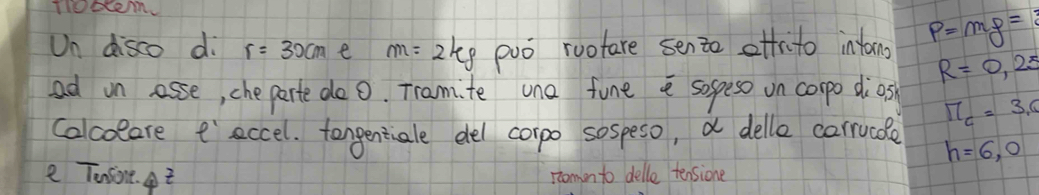 Problem.
Un disco di r= 30cm e m= 2kg può ruotare senza attrito intorno
ad un asse, che parte da O. Tramite una fune è sospeso un corpo di 0,5k
Calcolare l'accel. tangenziale del corpo sospeso, α della carrucola
e Tensione. z
Momento della tensione
P=mg=
R=0,25
= 3,0
h=6,0